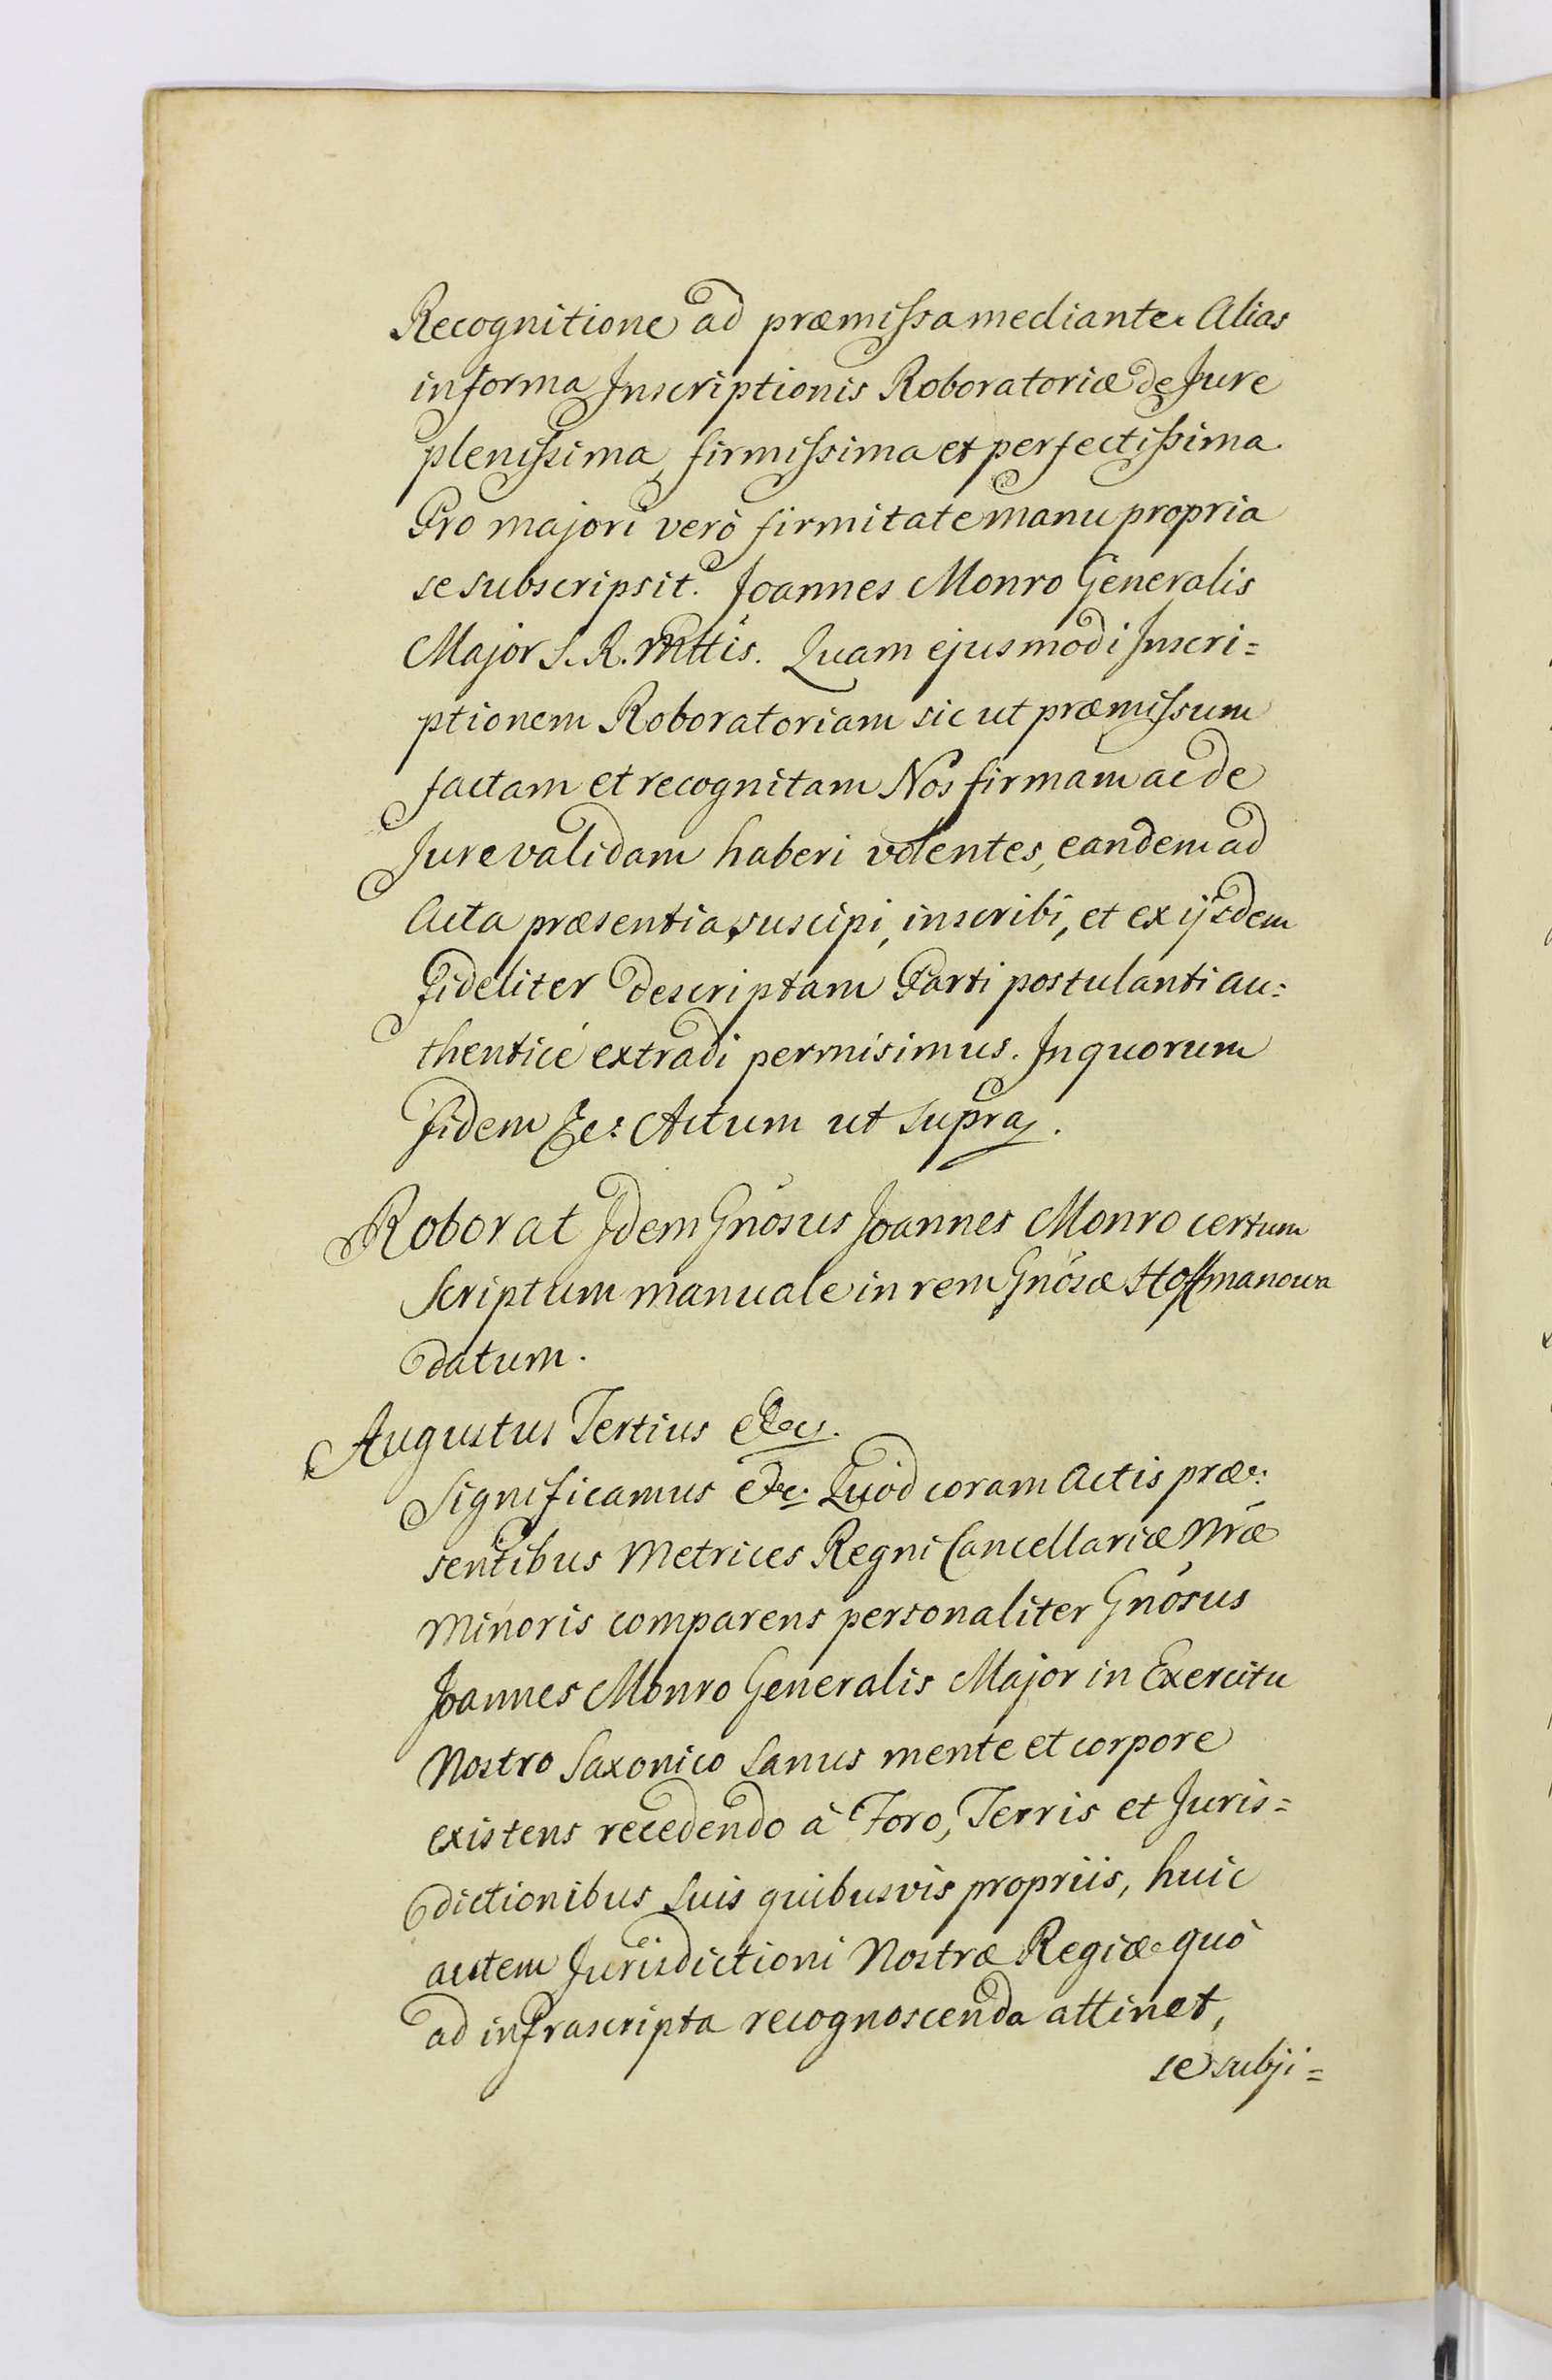 Recognitione ad præmissa mediante. Alias
in forma Inscriptionis Roboratoriæ de Jure
plenissima, firmissima et perfectissima.
Pro majori verò firmitate manu propria
se subscripsit. Joannes Monro Generalis
Major S. R. Mttis. Quam ejusmodi Inscri=
ptionem Roboratoriam sic ut præmissum
factam et recognitam Nos firmam ac de
Jure validam haberi volentes, eandem ad
Acta præsentia suscipi, inscribi, et ex ijsdem
fideliter descriptam Parti postulanti au=
thenticé extradi permisimus. In quorum
fidem &c: Actum ut supra.
Roborat Idem Gnosus Joannes Monro certum
Scriptum manuale in rem Gnosæ Hoffmanowa
datum.
Augustus Tertius &c.
Significamus &c. Quod coram Actis præ=
sentibus Metrices Regni Cancellariæ Nræ
Minoris comparens personaliter Gnosus
Joannes Monro Generalis Major in Exercitu
Nostro Saxonico Sanus mente et corpore
existens recedendo à Foro, Terris et Juris=
dictionibus Suis quibusvis propriis, huic
autem Jurisdictioni Nostræ Regiæ quò
ad infrascripta recognoscenda attinet,
se subji=